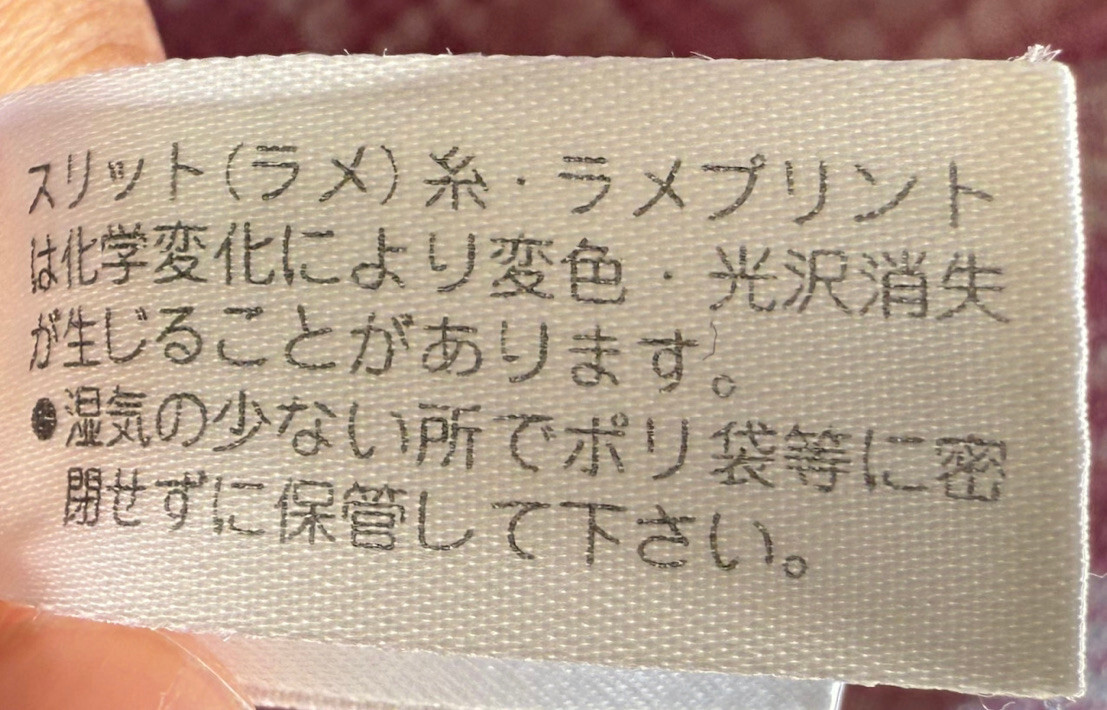 スリット(ラメ)糸・ラメプリント
は化学変化により変色・光沢消失
が生じることがあります。
●湿気の少ない所でポリ袋等に密
閉せずに保管して下さい。